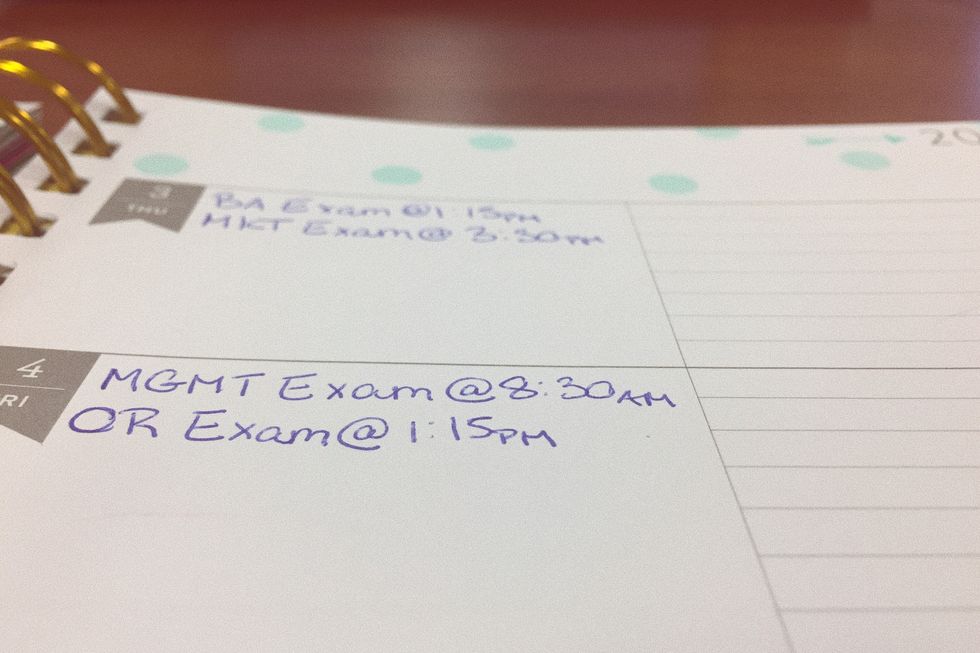 20
3
THU
BA Exam @ 1:15PM
MKT Exam @ 3:30PM
4
RI
MGMT Exam @ 8:30AM
OR Exam @ 1:15PM